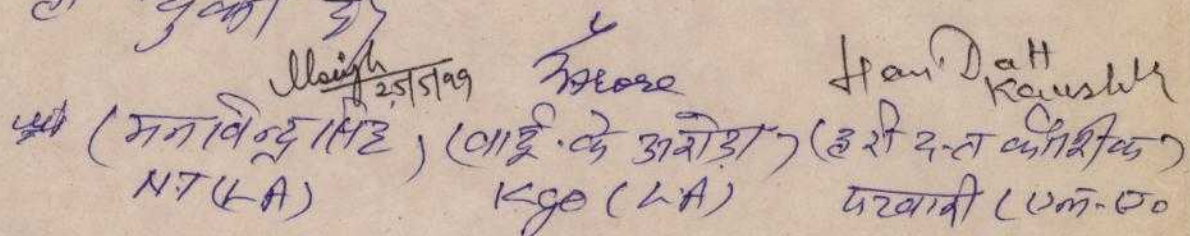 हो चुका है।
Msingh 25/5/99 Arora Hari Datt Kaushik
(मनविन्द्र सिंह) (वाई.के अरोड़ा) (हरी दत्त कौशिक)
N.T (LA) Kgo (LA) पटवारी (एल.ए०